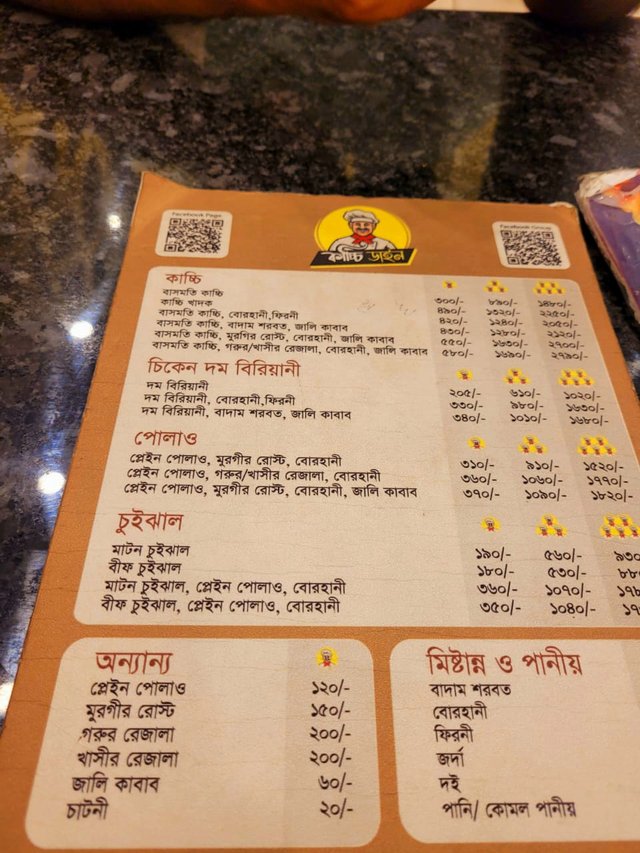 Facebook Page
Facebook Group
কাচ্চি ডাইন
কাচ্চি
বাসমতি কাচ্চি ৩০০/- ৮৯০/- ১৪৮০/-
কাচ্চি খাদক ৪৯০/- ১৩২০/- ২২৫০/-
বাসমতি কাচ্চি, বোরহানী,ফিরনী ৪২০/- ১২৪০/- ২০৫০/-
বাসমতি কাচ্চি, বাদাম শরবত, জালি কাবাব ৪৩০/- ১২৮০/- ২১২০/-
বাসমতি কাচ্চি, মুরগির রোস্ট, বোরহানী, জালি কাবাব ৫৫০/- ১৬৩০/- ২৭০০/-
বাসমতি কাচ্চি, গরুর/খাসীর রেজালা, বোরহানী, জালি কাবাব ৫৮০/- ১৬৯০/- ২৭৯০/-
চিকেন দম বিরিয়ানী
দম বিরিয়ানী ২০৫/- ৬১০/- ১০২০/-
দম বিরিয়ানী, বোরহানী,ফিরনী ৩৩০/- ৯৮০/- ১৬৩০/-
দম বিরিয়ানী, বাদাম শরবত, জালি কাবাব ৩৪০/- ১০১০/- ১৬৮০/-
পোলাও
প্লেইন পোলাও, মুরগীর রোস্ট, বোরহানী ৩১০/- ৯১০/- ১৫২০/-
প্লেইন পোলাও, গরুর/খাসীর রেজালা, বোরহানী ৩৬০/- ১০৬০/- ১৭৭০/-
প্লেইন পোলাও, মুরগীর রোস্ট, বোরহানী, জালি কাবাব ৩৭০/- ১০৯০/- ১৮২০/-
চুইঝাল
মাটন চুইঝাল ১৯০/- ৫৬০/- ৯৩০
বীফ চুইঝাল ১৮০/- ৫৩০/- ৮৮
মাটন চুইঝাল, প্লেইন পোলাও, বোরহানী ৩৬০/- ১০৭০/- ১৭
বীফ চুইঝাল, প্লেইন পোলাও, বোরহানী ৩৫০/- ১০৪০/- ১৭
অন্যান্য
প্লেইন পোলাও ১২০/-
মুরগীর রোস্ট ১৫০/-
গরুর রেজালা ২০০/-
খাসীর রেজালা ২০০/-
জালি কাবাব ৬০/-
চাটনী ২০/-
মিষ্টান্ন ও পানীয়
বাদাম শরবত
বোরহানী
ফিরনী
জর্দা
দই
পানি/ কোমল পানীয়